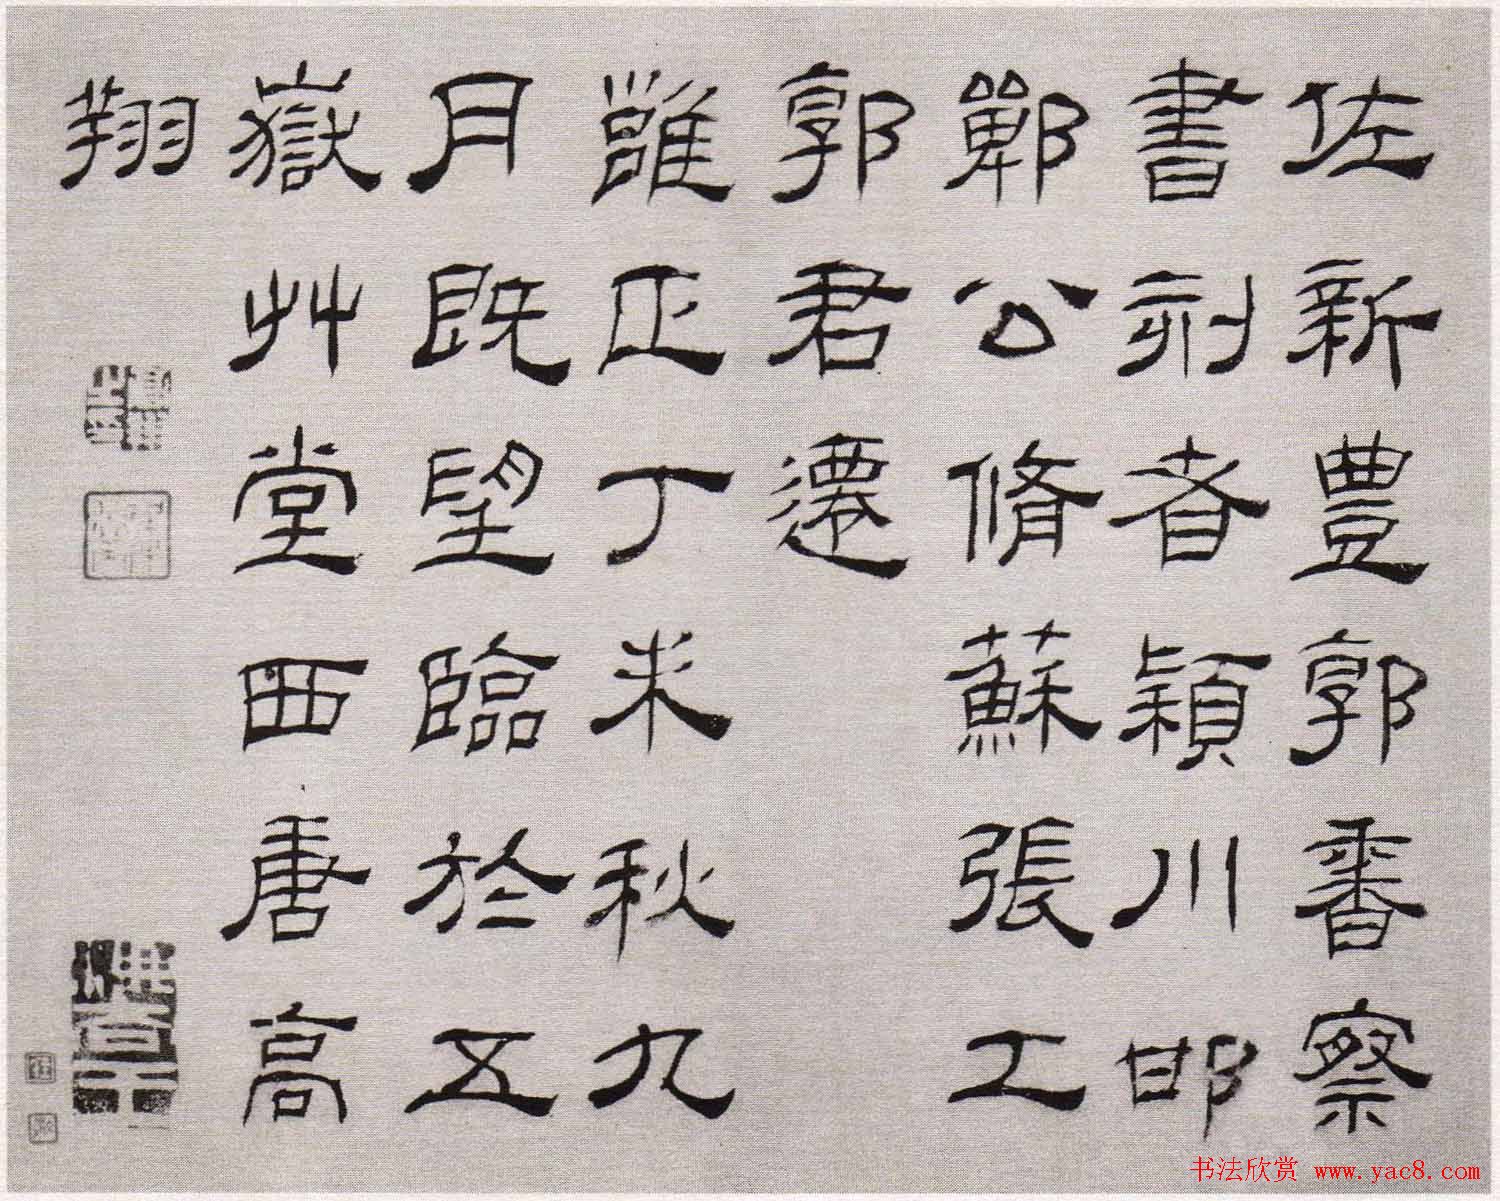 佐新豐郭香察
書刻者潁川邯
鄲公脩蘇張工
郭君遷
雝正丁未秋九
月既望臨於五
嶽艸堂西唐高
翔
书法欣赏 www.yac8.com